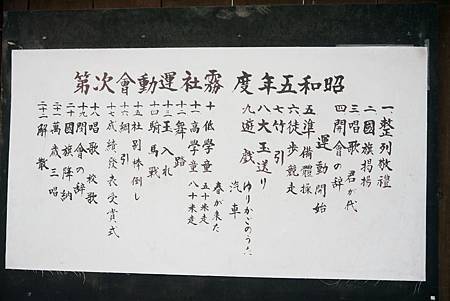 昭和五年度 霧社運動會次第
一 整列敬禮
二 國旗掲揚
三 唱歌 君が代
四 開會の辞
運動開始
五 準備體操
六 徒歩競走
七 竹引
八 大玉送り
九 遊戯 汽車 ゆりかごのうた
春が来た
十 低學童 五十米走
十一 高學童 八十米走
十二 舞踏
十三 玉入札
十四 騎馬戰
十五 社別棒倒し
十六 綱引
十七 成績発表受賞式
十八 唱歌 校歌
十九 閉會の辞
二十 國旗降納
二十一 萬歳三唱
二十二 解散